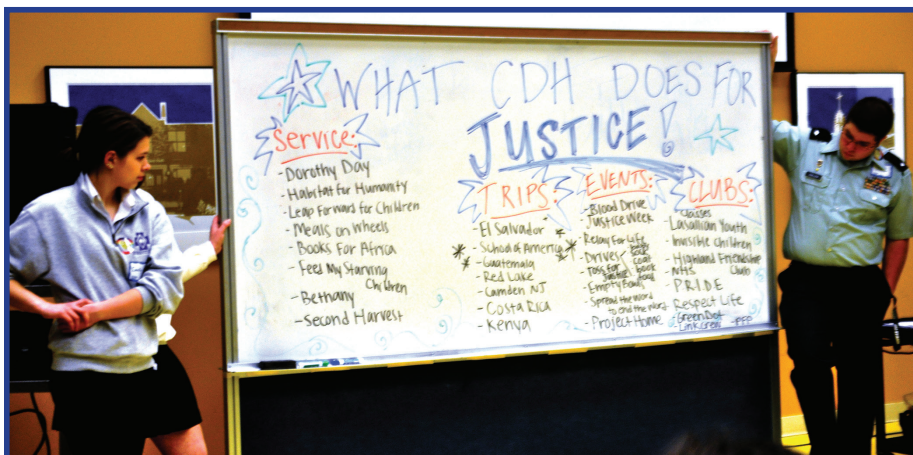 WHAT CDH DOES FOR
JUSTICE!
Service:
- Dorothy Day
- Habitat for Humanity
- Leap Forward for Children
- Meals on Wheels
- Books for Africa
- Feed My Starving
Children
- Bethany
- Second Harvest
TRIPS:
- El Salvador
- School of America
- Guatemala
- Red Lake
- Camden NJ
- Costa Rica
- Kenya
EVENTS:
- Blood Drive
- Justice Week
- Relay For Life
- Drives
coat
book
food
- Toss for
Justice
- Empty Bowls
- Spread the Word
to end the Word
- Project Home
CLUBS:
Classes
- Lasallian Youth
- Invisible Children
- Highland Friendship
Club
- NHS
- P.R.I.D.E
- Respect Life
- Green Dot
- Link Crew